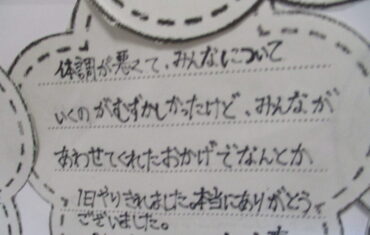 体調が悪くて、みんなについて
いくのがむずかしかったけど、みんなが
あわせてくれたおかげでなんとか
1日やりきれました。本当にありがとう
ございました。